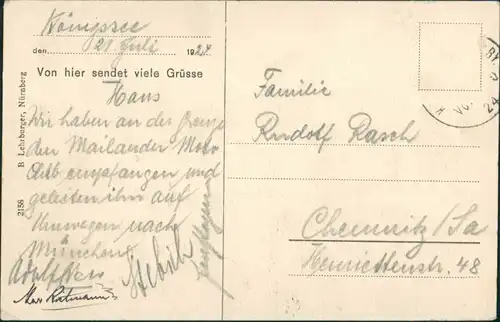 Königssee
den 21 Juli 1924
Von hier sendet viele Grüsse
Hans
Wir haben an der Grenze
den Mailander Moto
Club empfangen und
geleiten ihn auf
Umwegen nach
München
Adolf
Max Ratmann
2158 B Lehrburger, Nürnberg
Familie
Rudolf Rasch
Chemnitz/Sa
Henriettenstr. 48
24